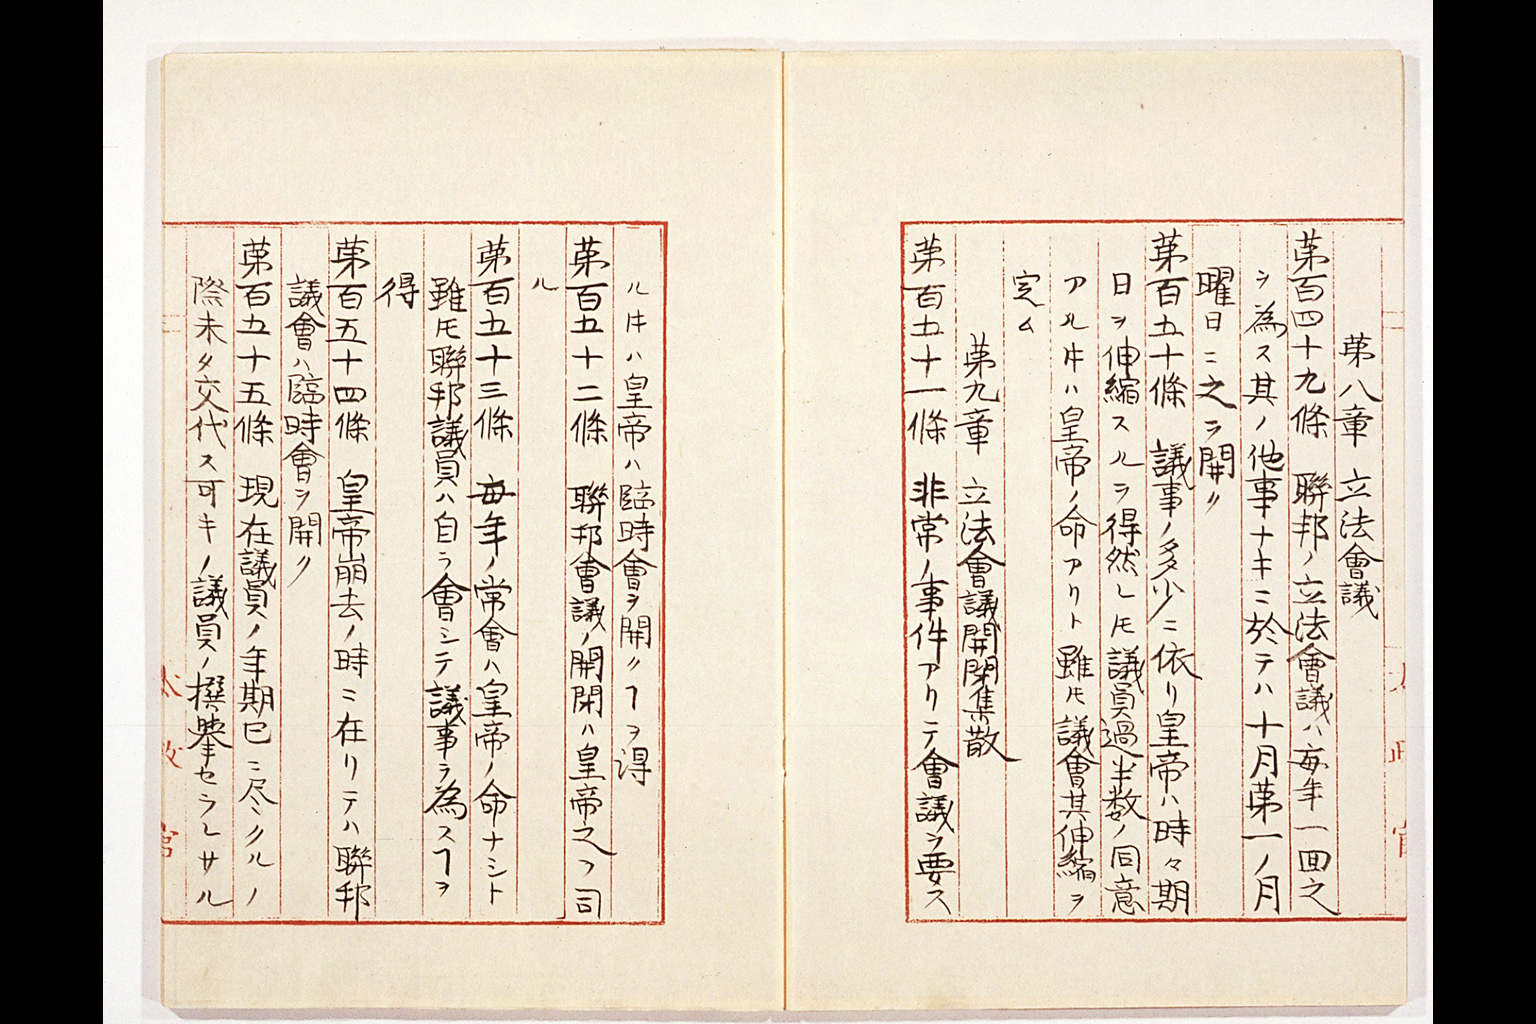 第八章 立法會議
第百四十九條 聯邦ノ立法會議ハ毎年一回之
ヲ為ス其ノ他事ナキニ於テハ十月第一ノ月
曜日ニ之ヲ開ク
第百五十條 議事ノ多少ニ依リ皇帝ハ時々期
日ヲ伸縮スルヲ得然レ𪜈議員過半数ノ同意
アルヰハ皇帝ノ命アリト雖𪜈議會其伸縮ヲ
定ム
第九章 立法會議開閉集散
第百五十一條 非常ノ事件アリテ會議ヲ要ス
ルヰハ皇帝ハ臨時會ヲ開クヿヲ得
第百五十二條 聯邦會議ノ開閉ハ皇帝之ヲ司
ル
第百五十三條 毎年ノ常會ハ皇帝ノ命ナシト
雖𪜈聯邦議員ハ自ラ會シテ議事ヲ為スヿヲ
得
第百五十四條 皇帝崩去ノ時ニ在リテハ聯邦
議會ハ臨時會ヲ開ク
第百五十五條 現在議員ノ年期已ニ尽クルノ
際未タ交代ス可キノ議員ノ撰擧セラレサル
太政官
太政官